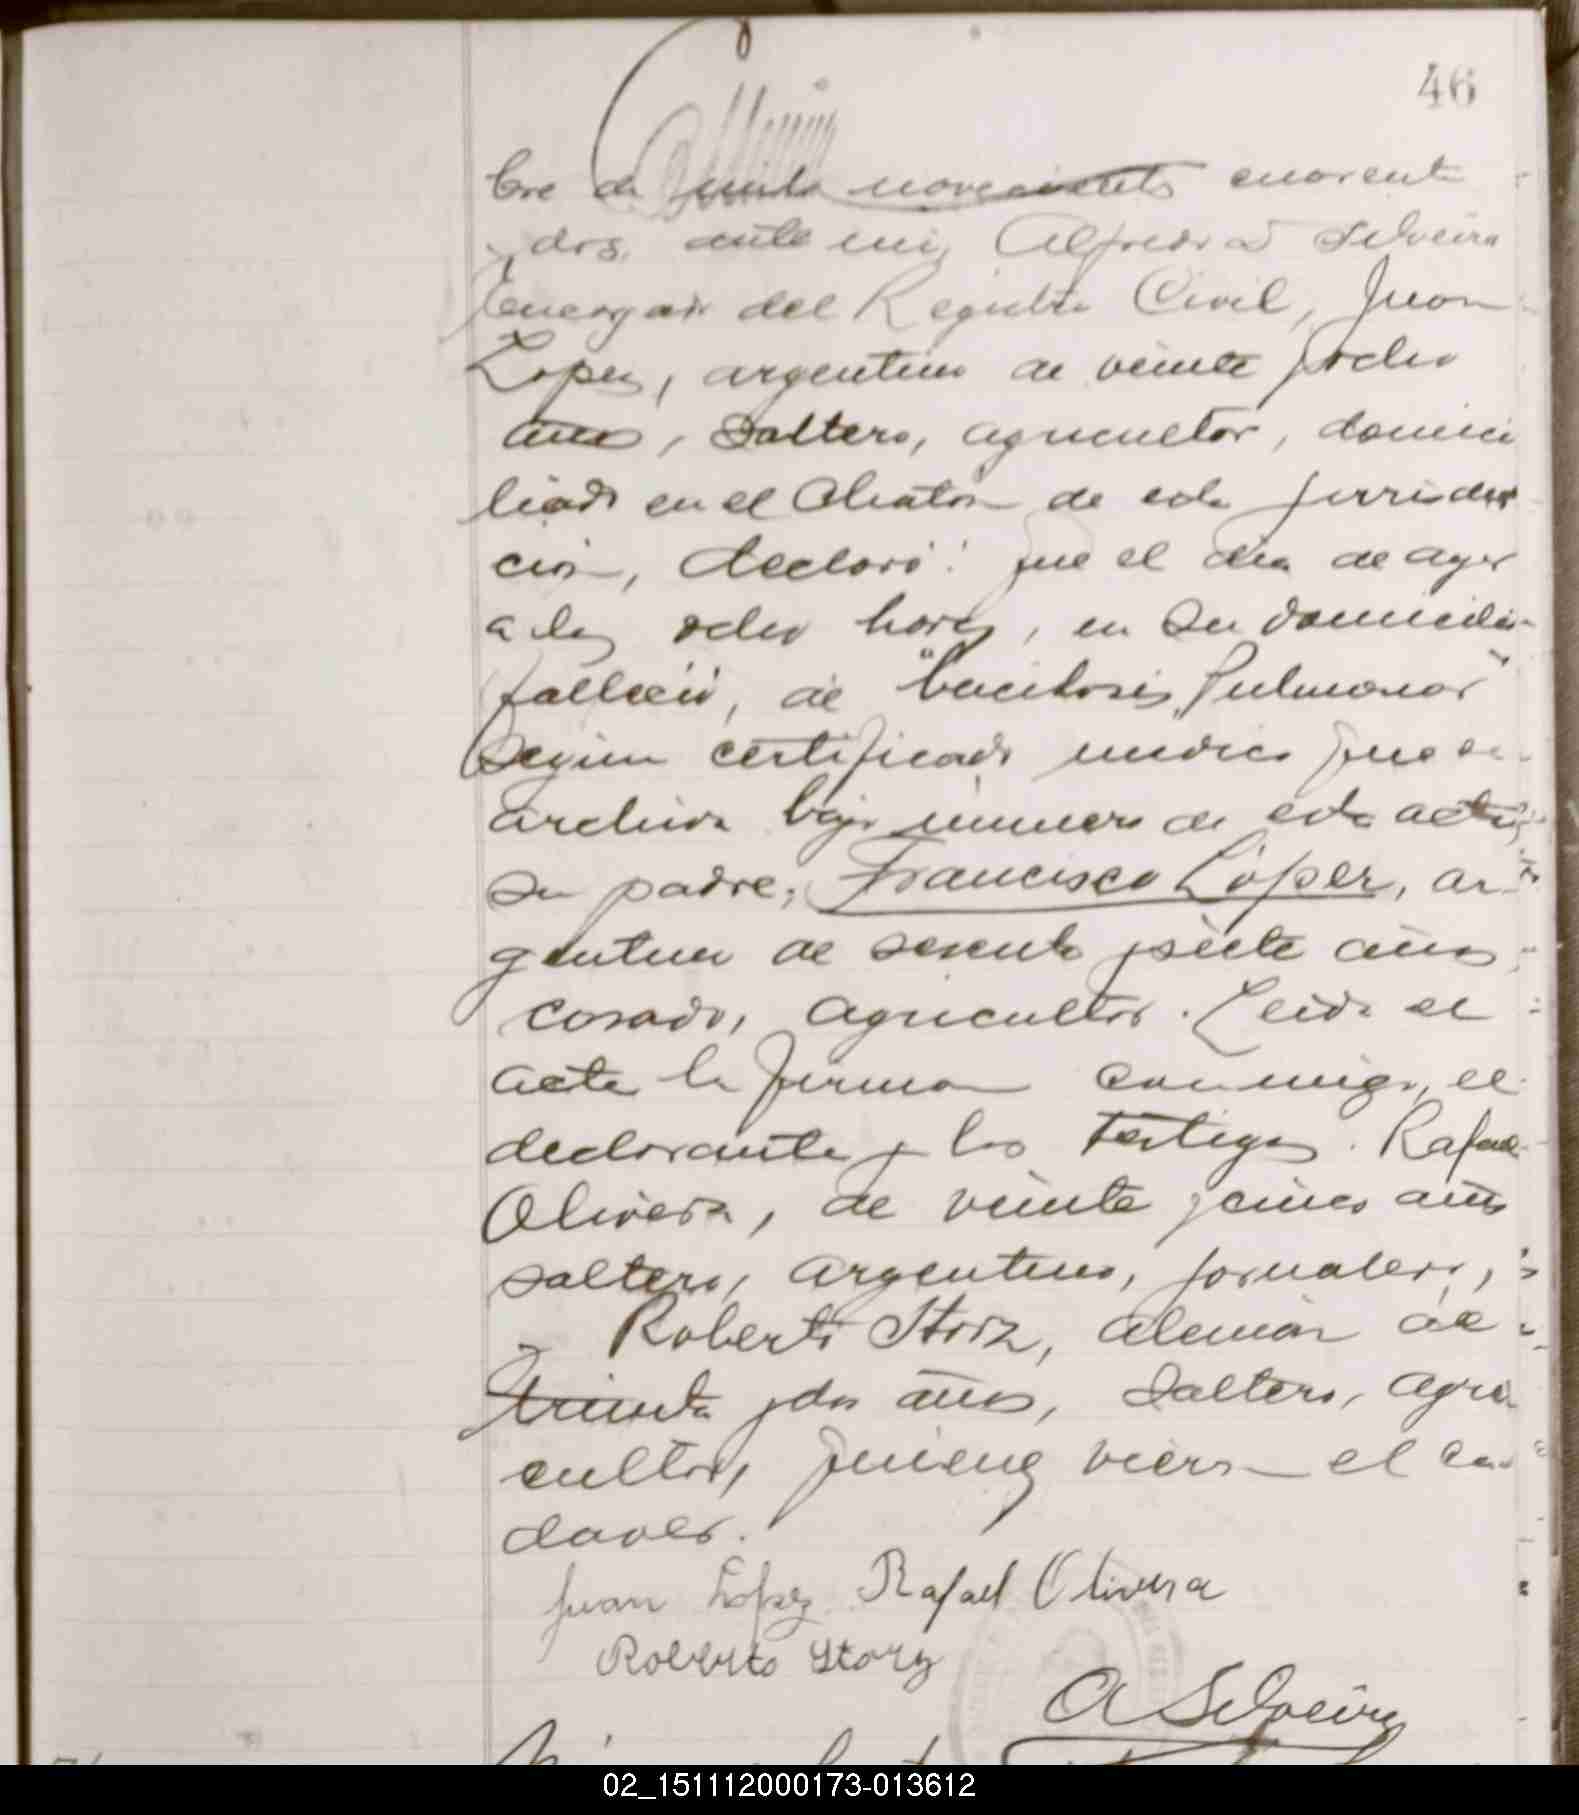 46
bre de mil novecientos cuarenta
y dos, ante mi, Alfredo A Silveira
Encargado del Registro Civil, Juan
Lopez, argentino de veinte y ocho
años, soltero, agricultor, domici
liado en el Chatón de esta jurisdic
ción, declaró: que el dia de ayer
a las ocho horas, en su domicilio
falleció, de "bacilosis pulmonar"
según certificado medico que se
archiva bajo número de esta acta,
su padre, Francisco López, ar
gentino de sesenta y siete años
casado, agricultor. Leida el
acta la firman conmigo, el
declarante y los testigos. Rafael
Olivera, de veinte y cinco años
soltero, argentino, jornalero,
y Roberto Storz, alemán de
treinta y dos años, soltero, agri
cultor, quienes vieron el ca
daver.
Juan López Rafael Olivera
Roberto Storz
A Silveira
02_151112000173-013612